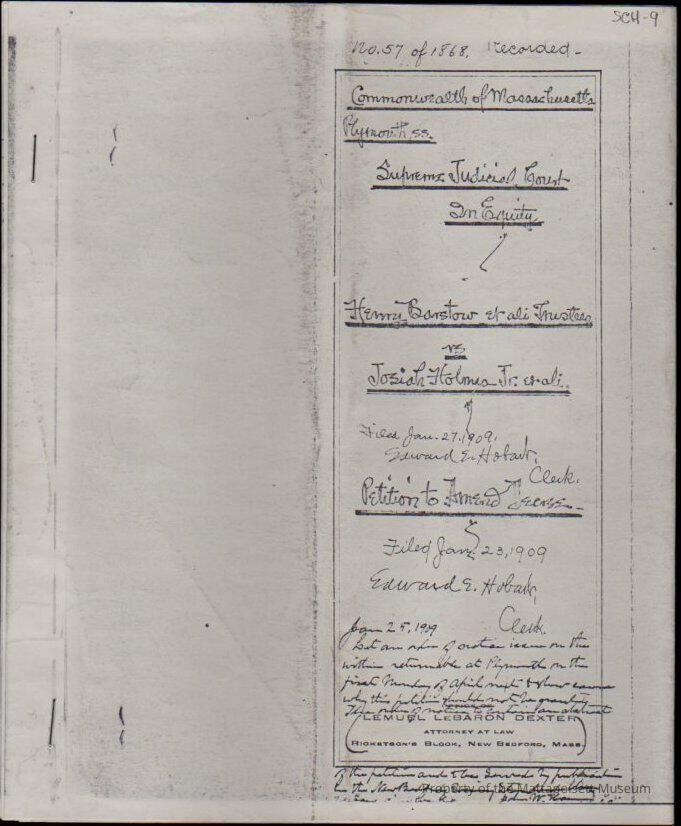 SCH-9
No. 57 of 1868. Recorded-
Commonwealth of Massachusetts
Plymouth, ss.
Supreme Judicial Court
In Equity
Henry Barstow et ali Trustees
vs
Josiah Holmes Jr. et ali.
Filed Jan. 27. 1909.
Edward E. Hobart,
Clerk.
Petition to Amend Decree-
Filed Jan. 23, 1909
Edward E. Hobart,
Clerk.
Jan 25, 1909
Let an order of notice issue on the
within returnable at Plymouth on the
first Monday of April next to show cause
why this petition should not be granted
The order of notice to contain an abstract
LEMUEL LEBARON DEXTER
ATTORNEY AT LAW
RICKETSON'S BLOCK, NEW BEDFORD, MASS.
of the petition and to be served by publication
in the New Bedford
Property of the Mattapoisett Museum